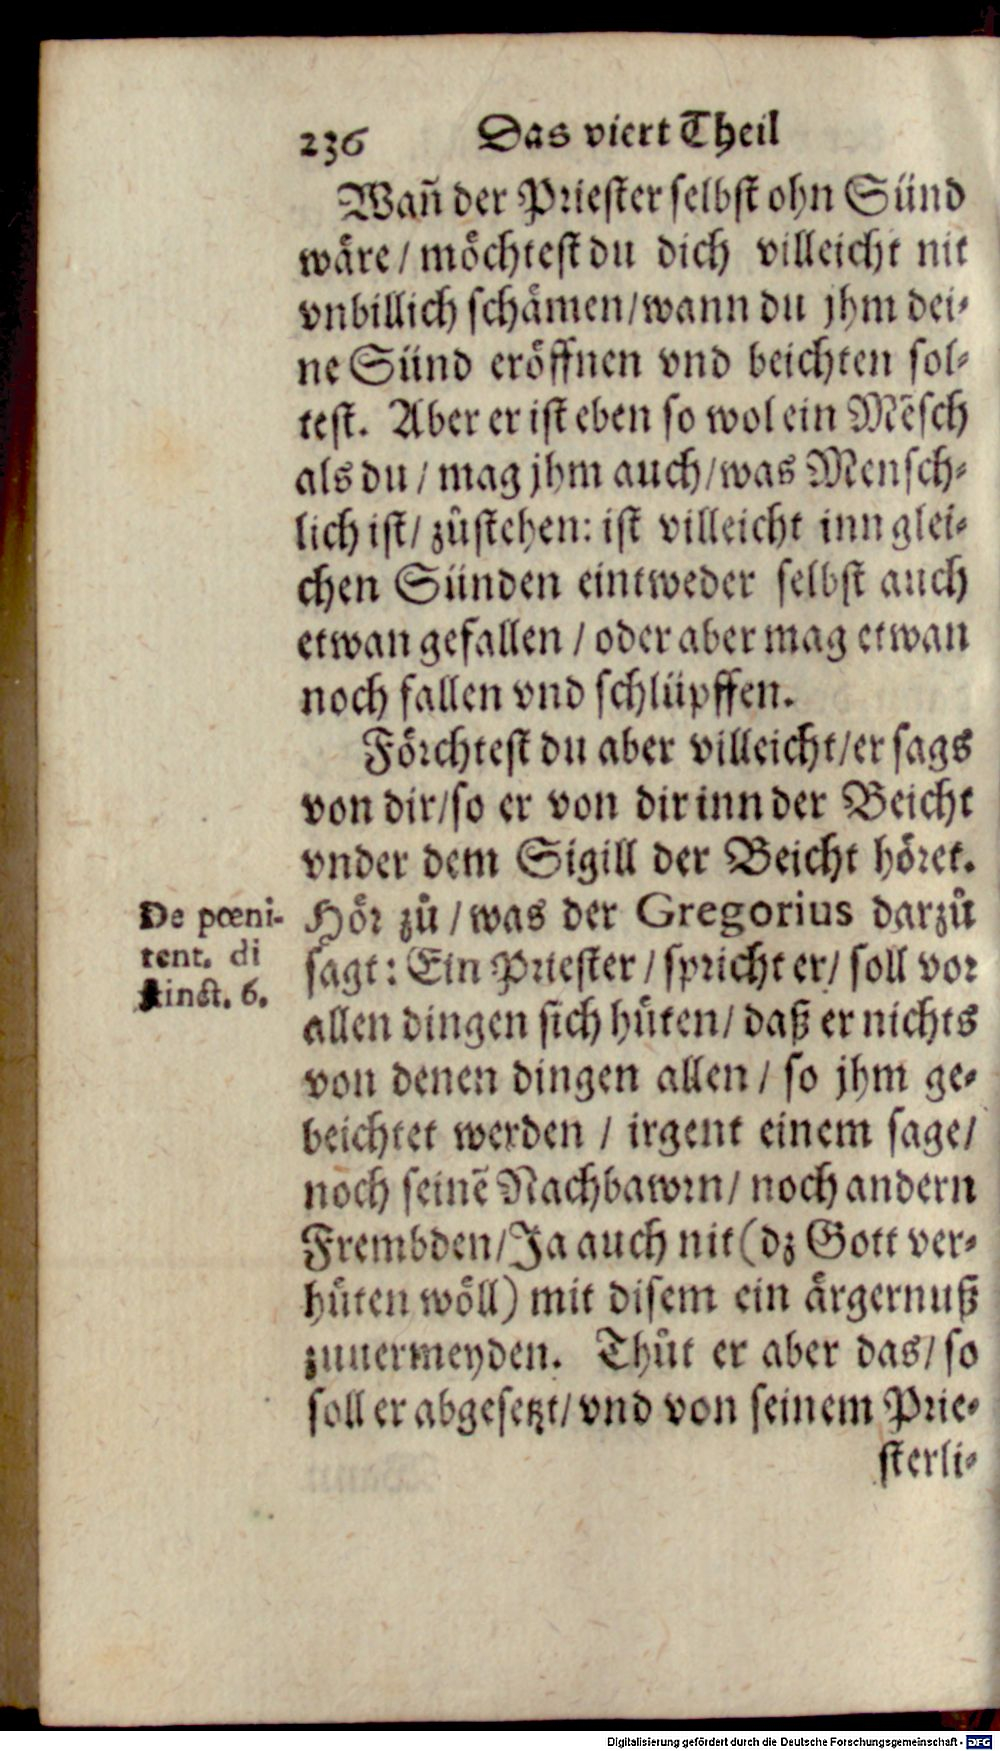 236 Das viert Theil
Wañ der Priester selbst ohn Sünd
wäre / möchtest du dich villeicht nit
vnbillich schämen / wann du jhm dei-
ne Sünd eröffnen vnd beichten sol-
test. Aber er ist eben so wol ein Mẽsch
als du / mag jhm auch / was Mensch-
lich ist / zůstehen: ist villeicht inn glei-
chen Sünden eintweder selbst auch
etwan gefallen / oder aber mag etwan
noch fallen vnd schlüpffen.
Förchtest du aber villeicht / er sags
von dir / so er von dir inn der Beicht
vnder dem Sigill der Beicht höret.
Hör zů / was der Gregorius darzů
sagt: Ein Priester / spricht er / soll vor
allen dingen sich hüten / daß er nichts
von denen dingen allen / so jhm ge-
beichtet werden / irgent einem sage /
noch seinẽ Nachbawrn / noch andern
Frembden / Ja auch nit (dz Gott ver-
hüten wöll) mit disem ein ärgernuß
zuuermeyden. Thůt er aber das / so
soll er abgesetzt / vnd von seinem Prie-
sterli-
De pœni-
tent. di
stinct. 6.
Digitalisierung gefördert durch die Deutsche Forschungsgemeinschaft - DFG